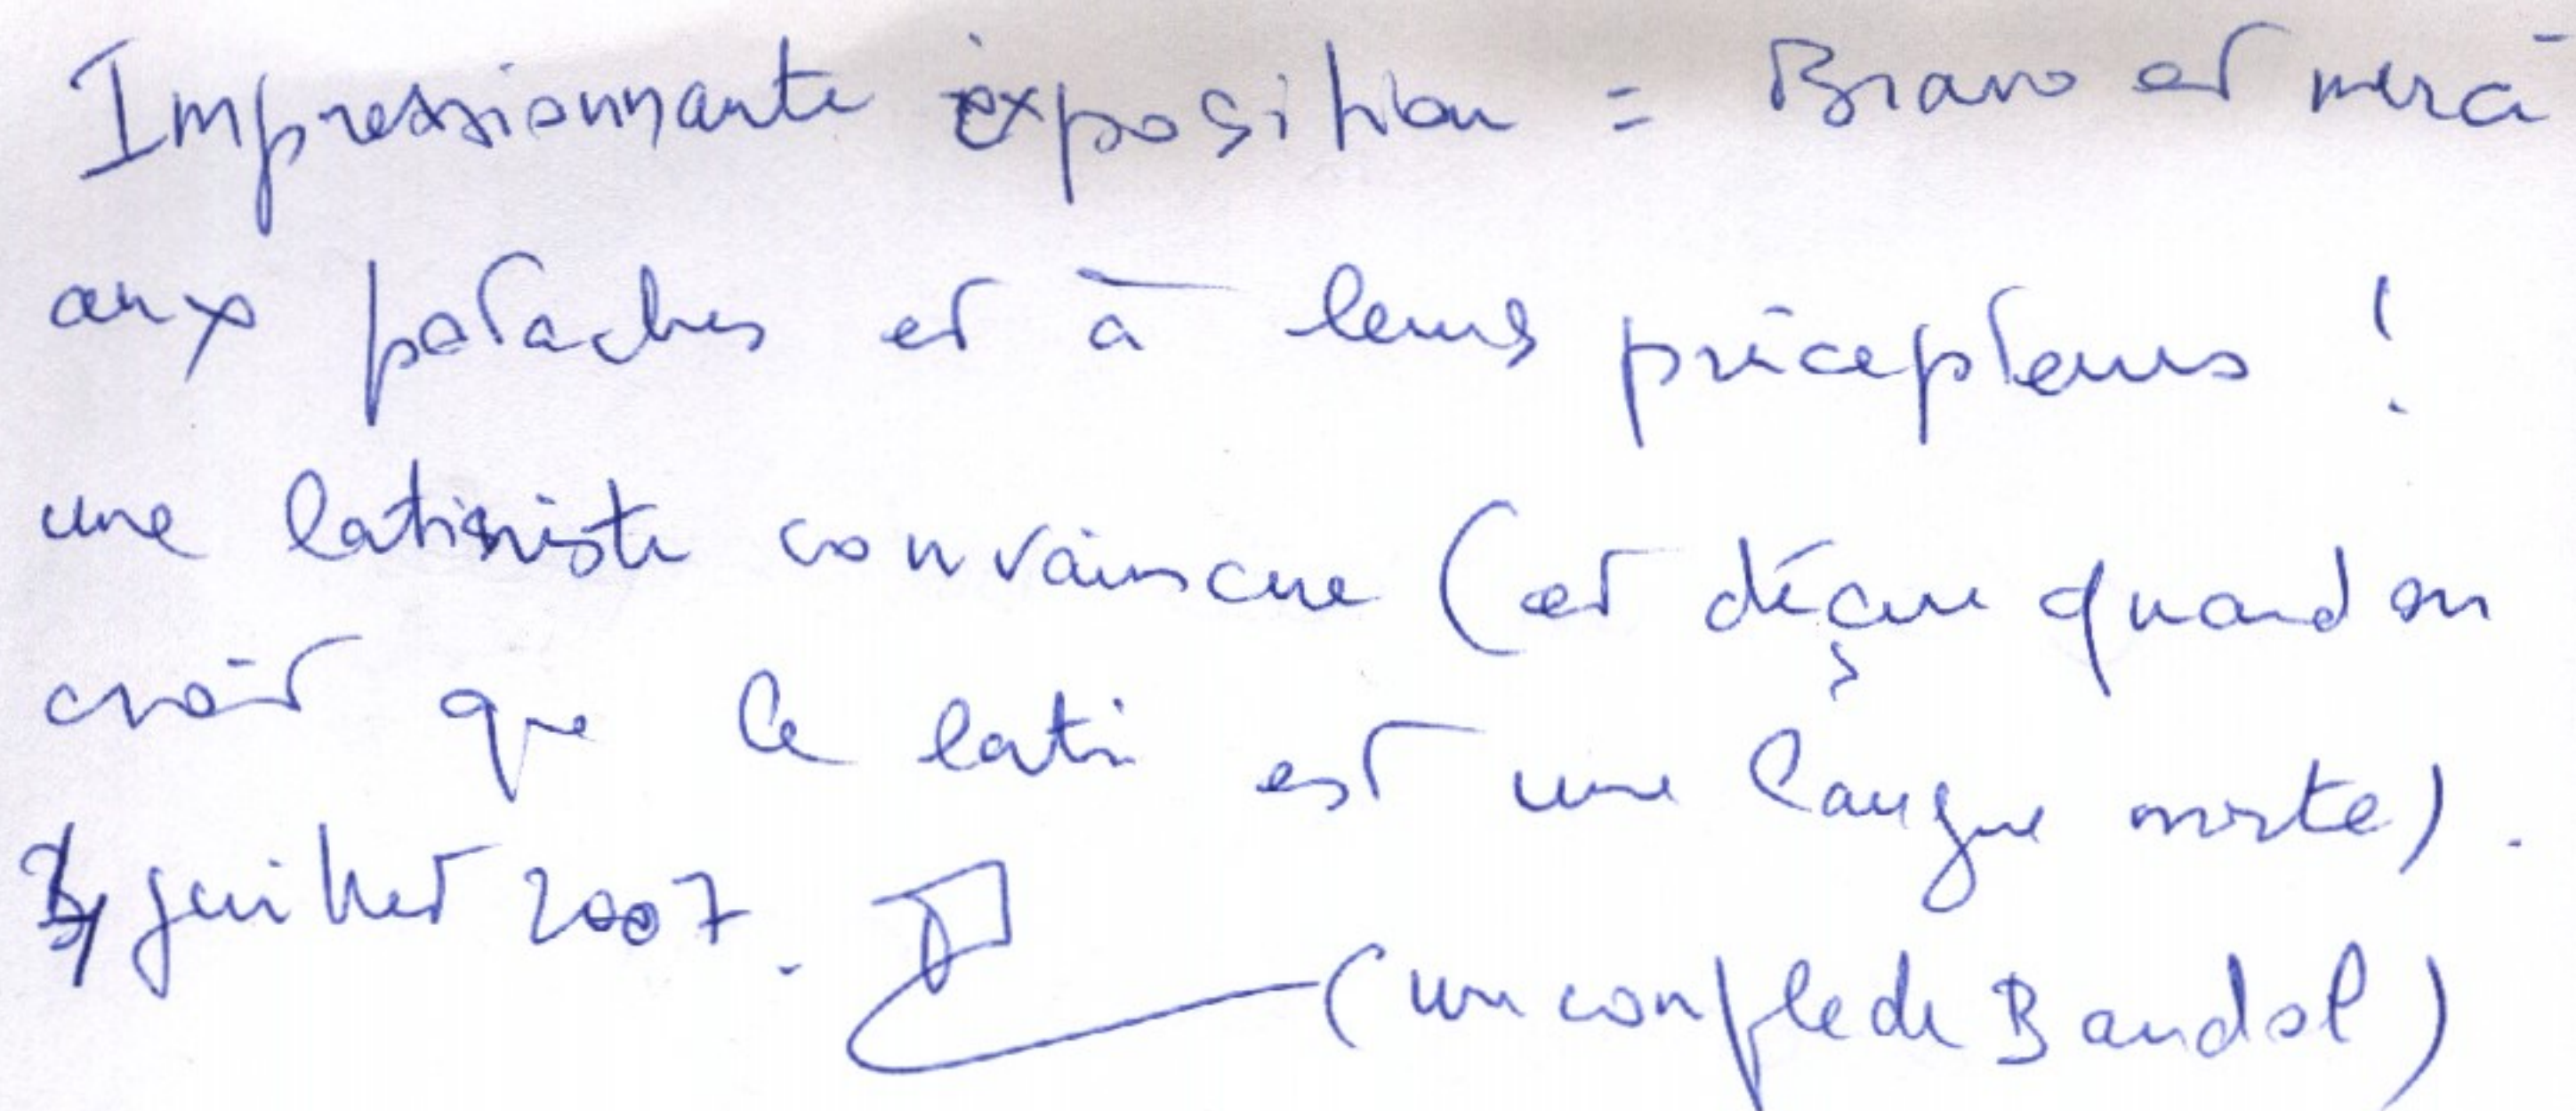 Impressionnante exposition = Bravo et merci
aux potaches et à leurs précepteurs !
une latiniste convainscue (et déçue quand on
croit que le latin est une langue morte).
juillet 2007.
(un couple de Bandol)